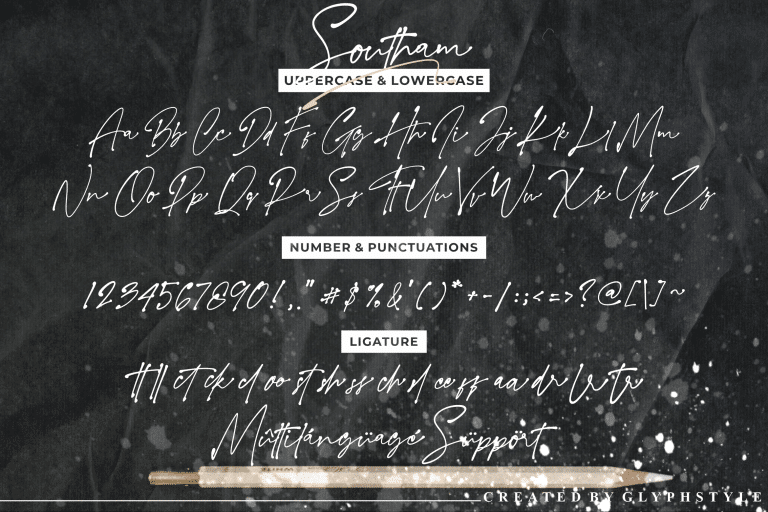 Southam
UPPERCASE & LOWERCASE
Aa Bb Cc Dd Ff Gg Hh Ii Jj Kk Ll Mm
Nn Oo Pp Qq Rr Ss Tt Uu Vv Ww Xx Yy Zz
NUMBER & PUNCTUATIONS
1234567890!,.."#$%&'()*+-/:;<=>?@[\]~
LIGATURE
tt ll ct ck cl oo st sh ss ch sl ee ff aa dr lr tr
Mûltilángüagé Süppört
CREATED BY GLYPHSTYLE